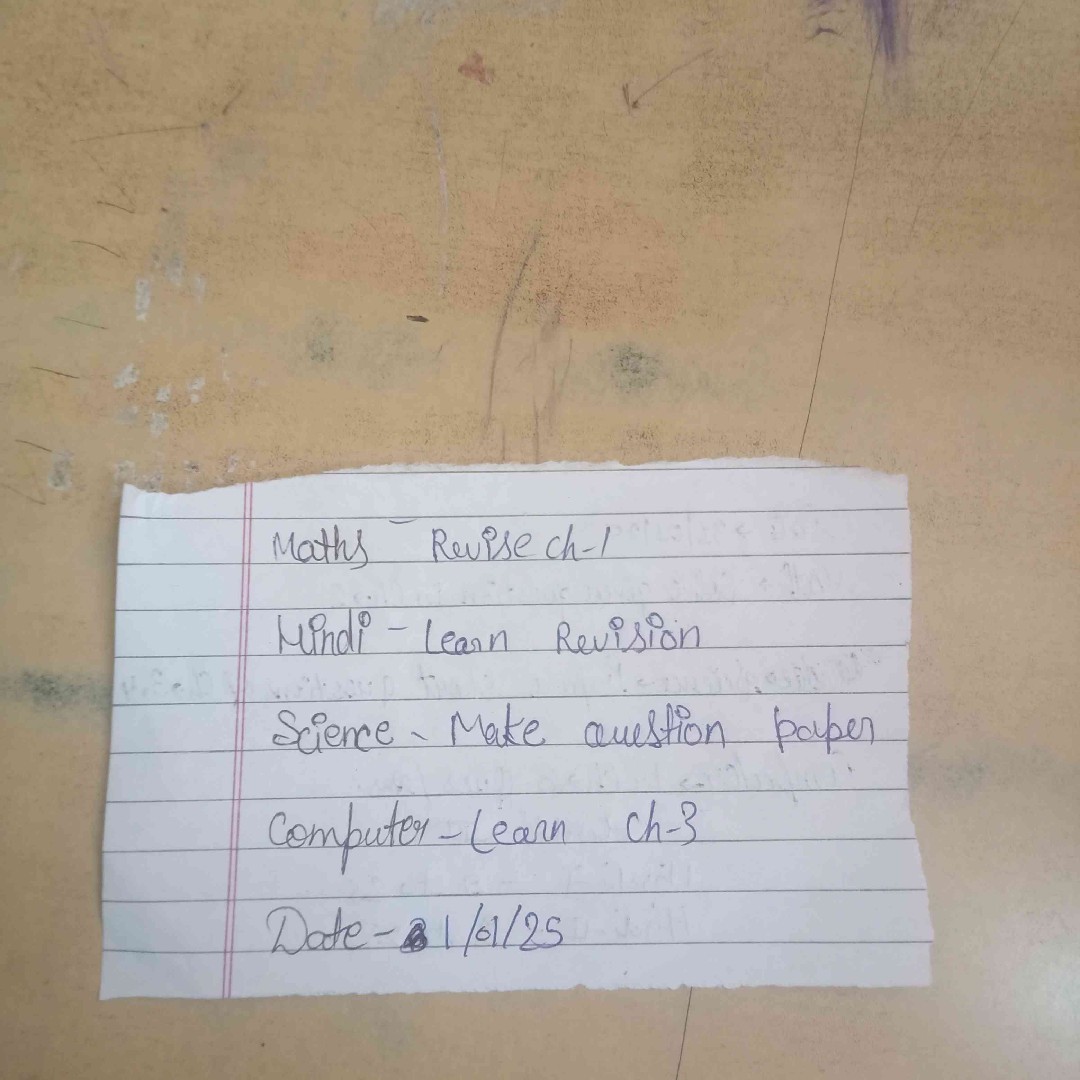 Maths - Revise ch-1
Hindi - Learn Revision
Science - Make question paper
Computer - Learn ch-3
Date - 31/01/25